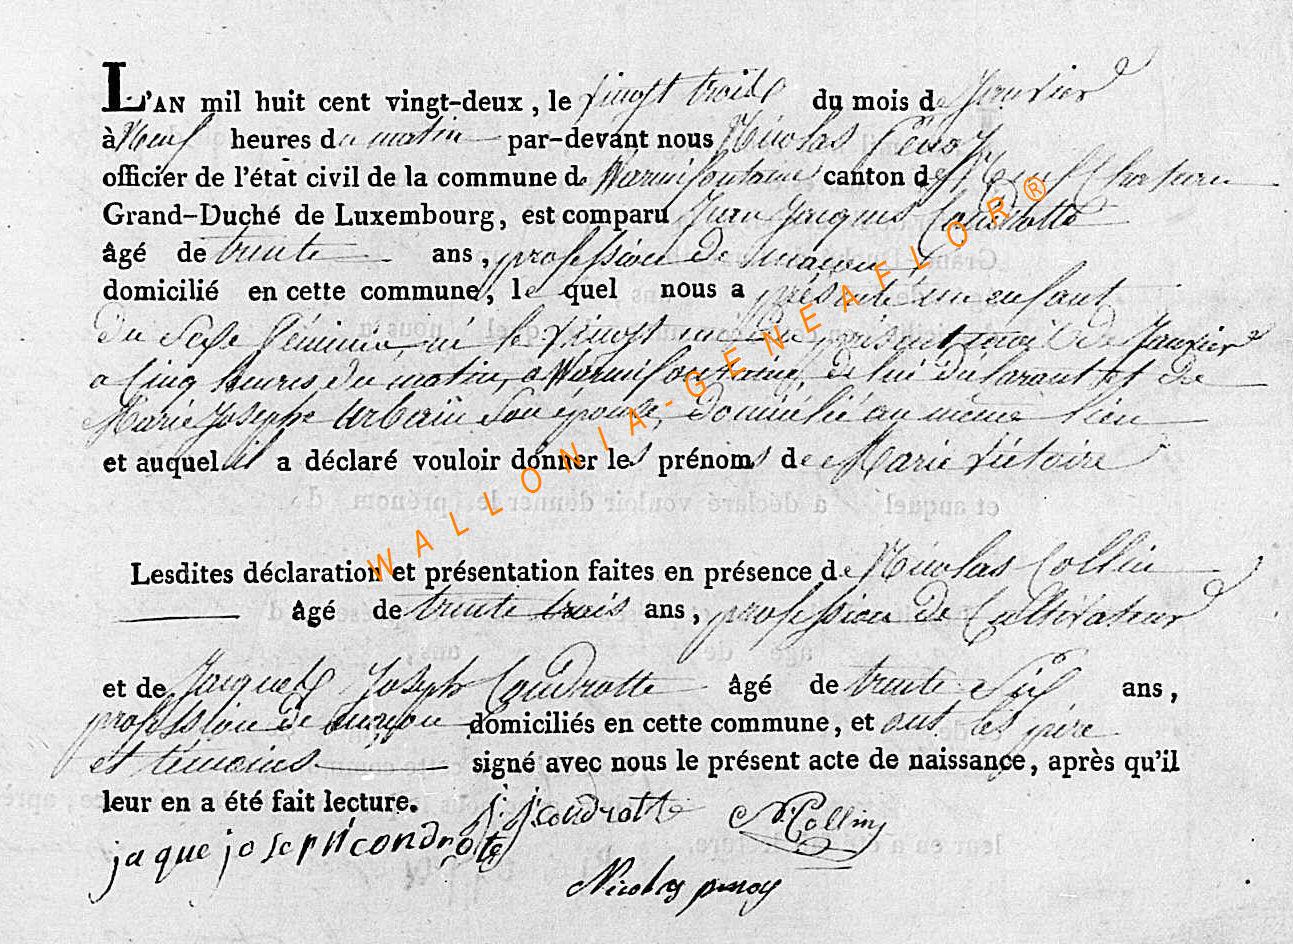 L'AN mil huit cent vingt-deux, le vingt trois du mois de Janvier
à Neuf heures du matin par-devant nous Nicolas Penoy
officier de l'état civil de la commune de Warmifontaine canton de Neufchateau
Grand-Duché de Luxembourg, est comparu Jean Jacques Condrotte
âgé de trente ans, profession de maçon
domicilié en cette commune, lequel nous a présenté un enfant
du Sexe féminin, né le vingt du présent mois de Janvier
a Cinq heures du matin, a Warmifontaine, de lui déclarant et de
Marie Josephe Urbain Son épouse, Domicilié au même lieu
et auquel il a déclaré vouloir donner les prénoms de Marie Victoire
Lesdites déclaration et présentation faites en présence de Nicolas Collin
âgé de trente trois ans, profession de Cultivateur
et de Jacques Joseph Condrotte âgé de trente Six ans,
profession de maçon domiciliés en cette commune, et ont les père
et témoins signé avec nous le présent acte de naissance, après qu'il
leur en a été fait lecture.
j: j: condrotte N: Collin
jaque joseph condrotte
Nicolas penoy
WALLONIA-GENEAFLOR®